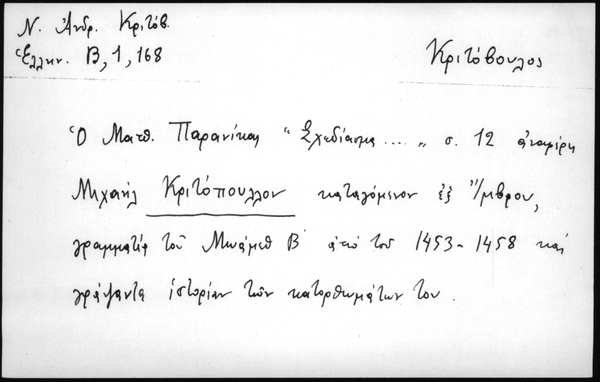 Ν. Ἀνδρ. Κριτόβ.
Ἑλλην. Β, 1, 168
Κριτόβουλος
Ὁ Ματθ. Παρανίκας "Σχεδίασμα...." σ. 12 ἀναφέρει
Μιχαήλ Κριτόπουλλον καταγόμενον ἐξ Ἴμβρου,
γραμματέα τοῦ Μωάμεθ Β΄ ἀπό τοῦ 1453-1458 καί
γράψαντα ἱστορίαν τῶν κατορθωμάτων του.